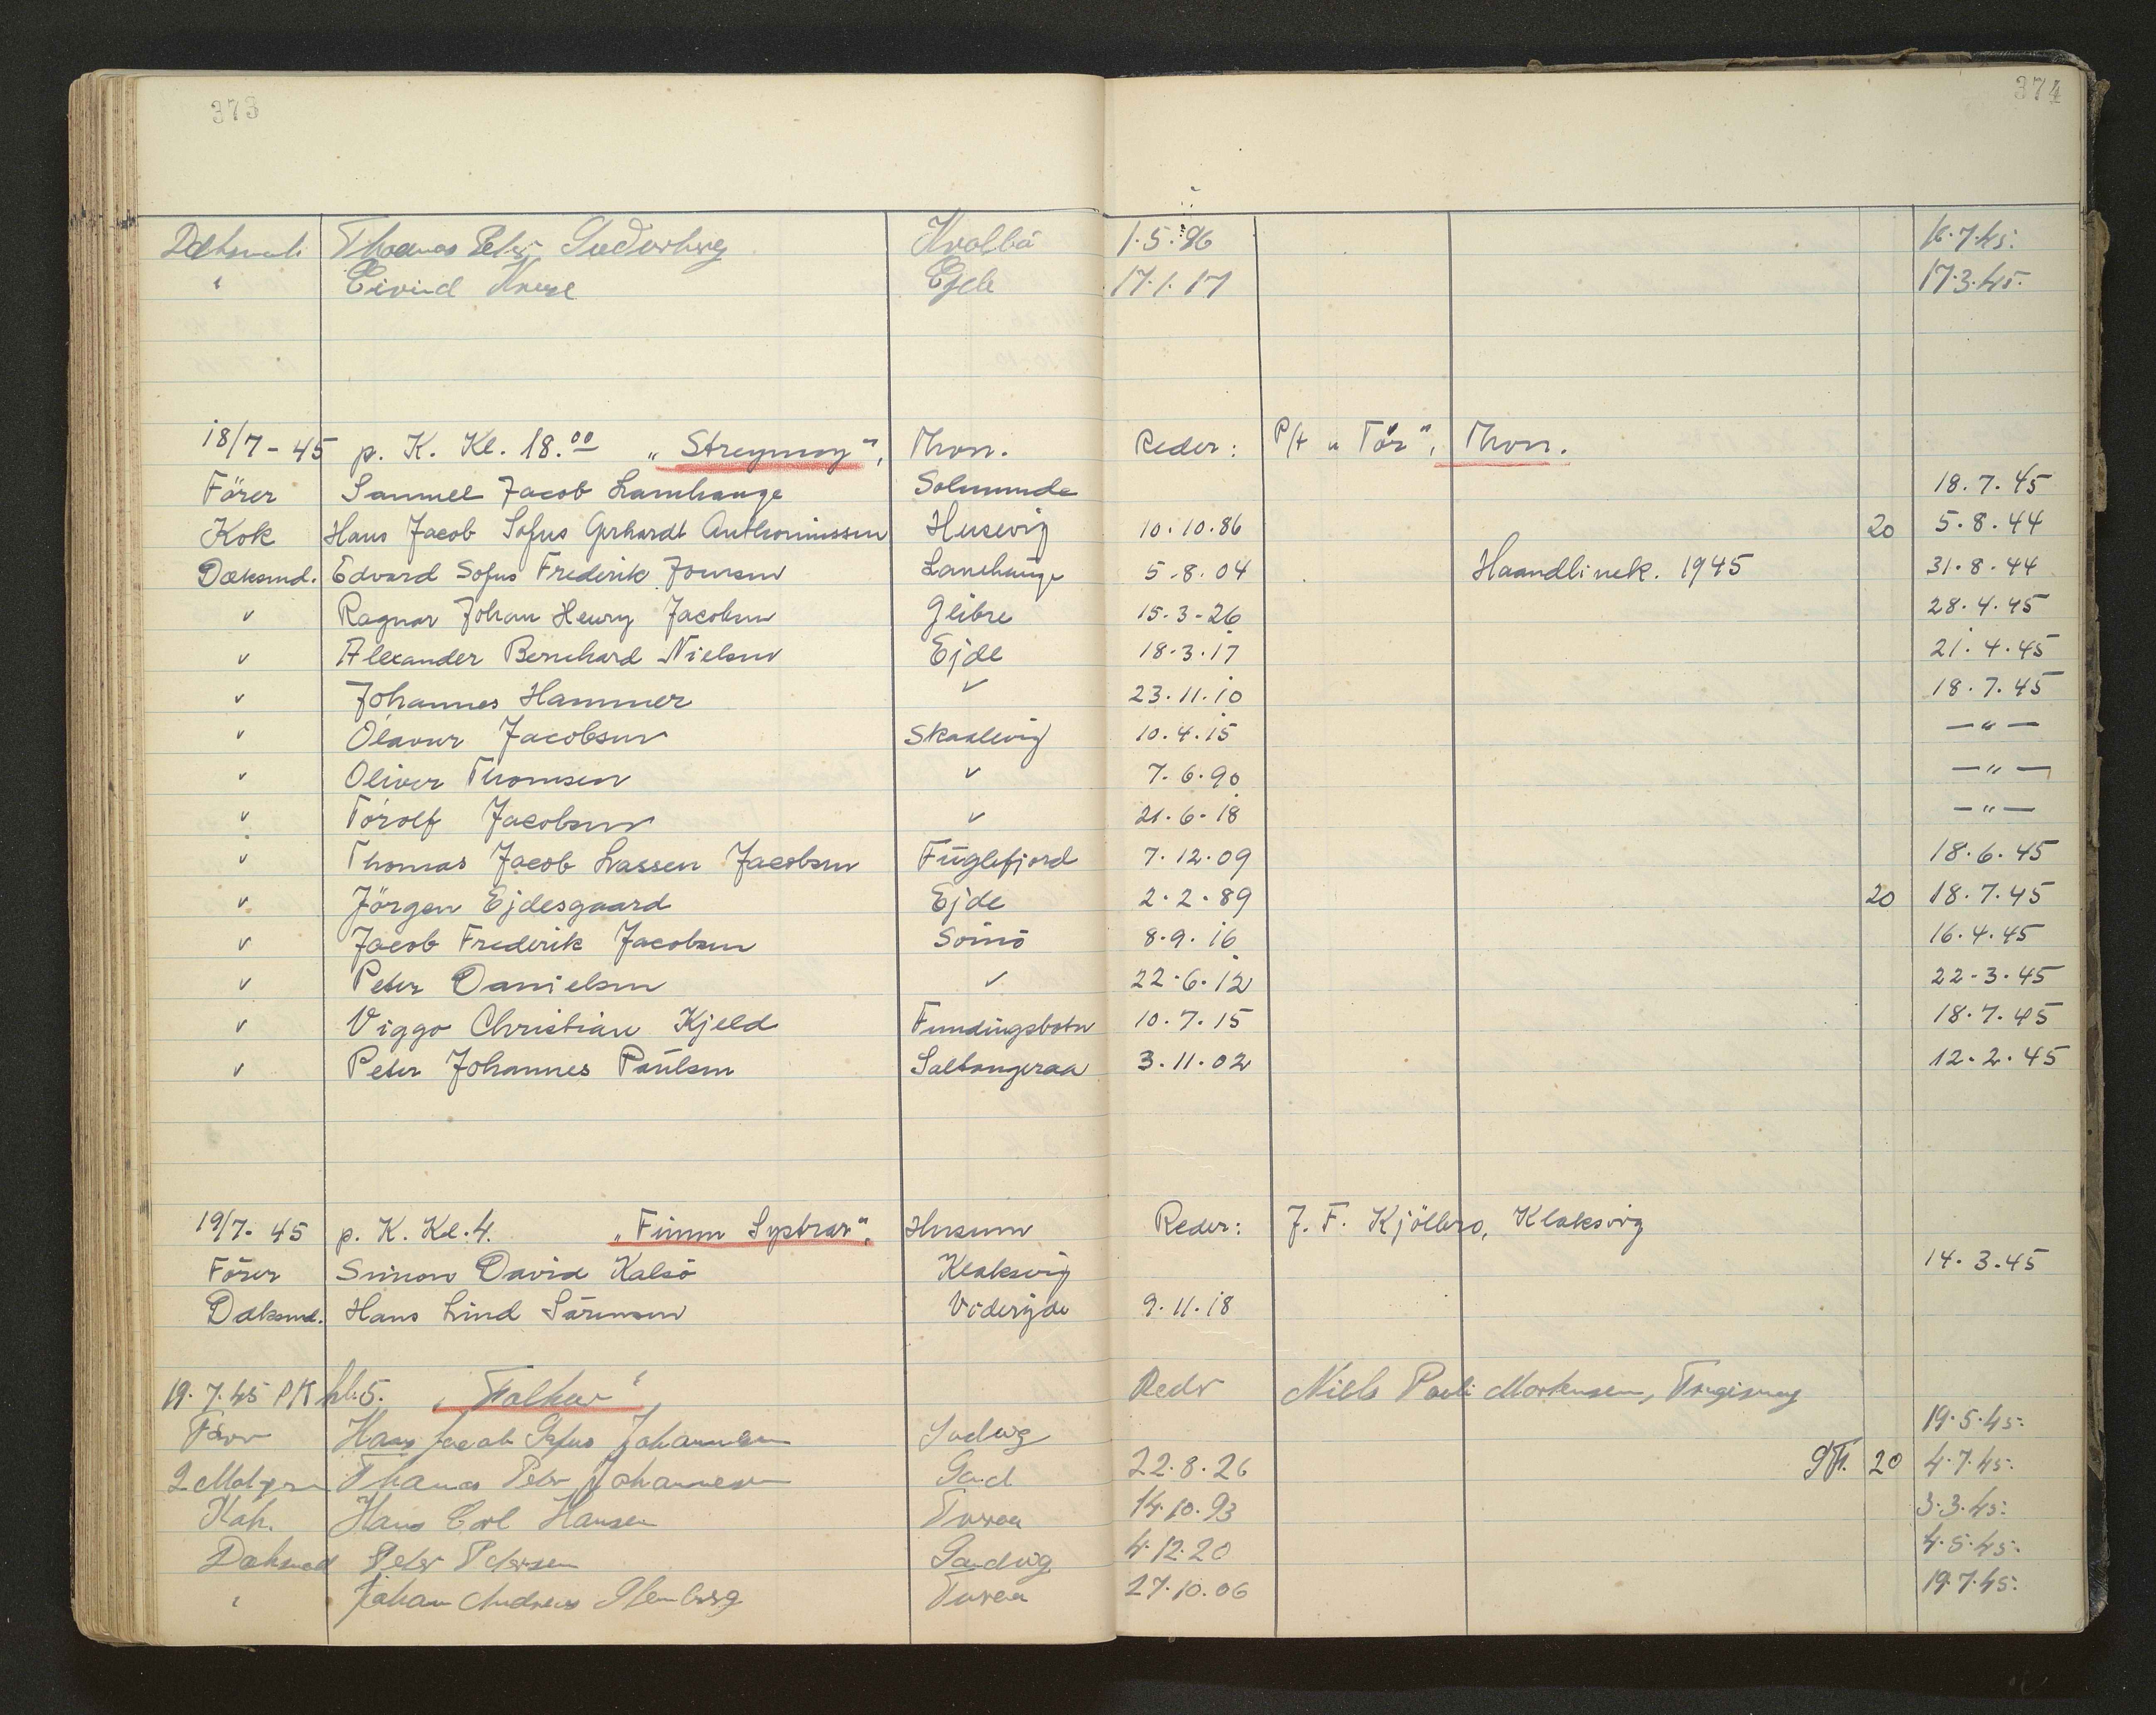 373
374
Dæksmd. Thomas Peter Kvalbø 1.5.86 16.7.45.
" Eivind Kruse Ejde 17.1.17 17.3.45.
18/7-45 p. K. Kl. 18.00 „Streymoy", Thvn. Reder: P/f „Tór", Thvn.
Förer Samuel Jacob Lamhauge Solmunde 18.7.45
Kok Hans Jacob Sofus Gerhardt Anthoniussen Husevig 10.10.86 20 5.8.44
Dæksmd. Edvard Sofus Frederik Joensen Lamhauge 5.8.04 Haandlinek. 1945 31.8.44
v Ragnar Johan Henry Jacobsen Glibre 15.3-26 28.4.45
v Alexander Bernhard Nielsen Ejde 18.3.17 21.4.45
v Johannes Hammer v 23.11.10 18.7.45
v Ólavur Jacobsen Skaalevig 10.4.15 —"—
v Oliver Thomsen v 7.6.90 —"—
v Tórolf Jacobsen v 21.6-18 —"—
v Thomas Jacob Lassen Jacobsen Fuglefjord 7.12.09 18.6.45
v Jörgen Ejdesgaard Ejde 2.2.89 20 18.7.45
v Jacob Frederik Jacobsen 8.9.16 16.4.45
v Peter Danielsen v 22.6.12 22-3.45
v Viggo Christian Kjeld Fundingsbotn 10.7.15 18.7.45
v Peter Johannes Paulsen Saltangeraa 3.11.02 12.2.45
19/7-45 p. K. Kl. 4. „Fimm Systrar", Husum Reder: J. F. Kjölbro, Klaksvig
Förer Simon David Kalsö Klaksvig 14.3.45
Dæksmd. Hans Lind Sörensen Viderejde 9.11.18
19.7.45 PK kl. 5. „Falkur", Reder Niels Pauli Mortensen, Trngisvaag
Förer Hans Jacob Sofus Johannesen Sandvig 19.5.45.
2 Motorm Thomas Peter Johannesen Sand 22.8.26 20 4.7.45.
Kok. Hans Carl Hansen Tvøraa 14.10.93 3.3.45.
Dæksmd Peter Petersen Sandvig 4.12.20 4.5.45.
" Johan Andreas Tvøraa 27.10.06 19.7.45.